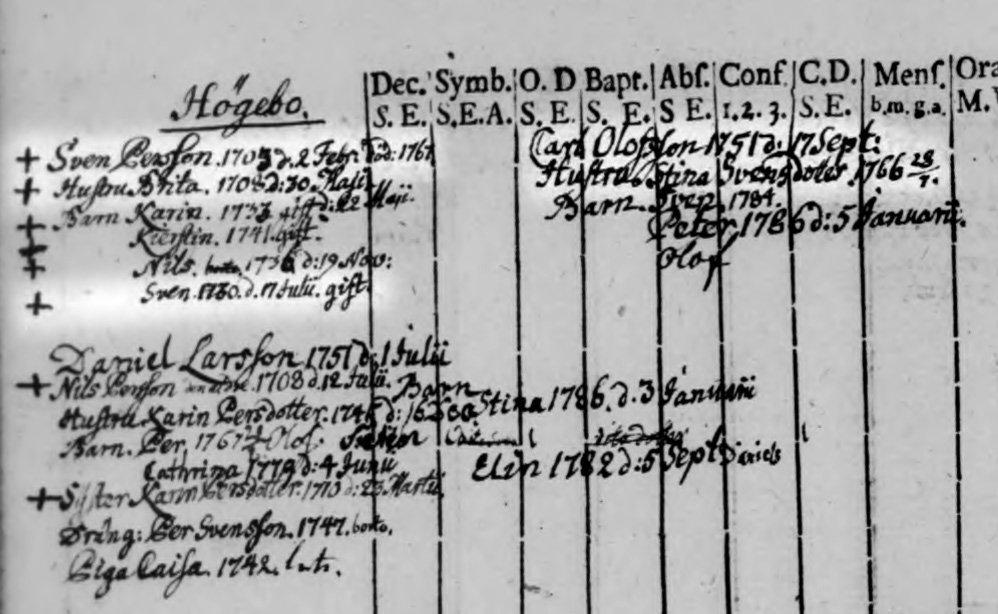 Högebo.
Dec. Symb. O. D Bapt. Abſ. Conf C.D. Menſ. Ora
S. E. S.E.A. S. E. S. E. S E. 1. 2. 3. S. E. b.m. g.a. M.
+ Sven Persson. 1703 d. 2 Febr. död: 1767
Carl Olofsson 1751 d: 17 Sept:
+ Hustru Brita. 1708 d: 30 Maji
Hustru. Stina Svensdoter. 1766 28/7.
+ Barn Karin. 1733 gift d: 22 Maji.
Barn. Sven. 1784.
+ Kierstin. 1741. gift.
Peter. 1786 d: 5 Januarii.
+ Nils. borto. 1736 d: 19 Nov:
Olof
+ Sven. 1730. d. 17 Julii. gift.
Daniel Larsson 1751 d. 1 Julii
+ Nils Persson 1708 d. 12 Julii.
Barn
Stina 1786. d. 3 Januarii
Hustru Karin Persdotter. 1746 d: 16 Dec.
Barn. Per. 1767 Olof.
Cathrina 1779 d: 4 Junii
Elin 1782 d: 5 Sept Daniels
+ Syster Karin Persdotter. 1710 d: 23 Martii
Dräng: Per Svensson. 1747. borto.
Piga Caisa. 1742.